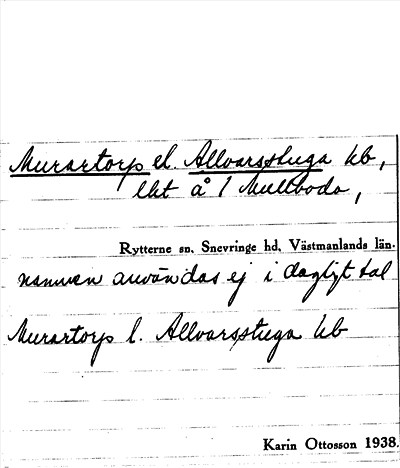 Murartorp el. Allvarsstuga hb,
lht å 1 Mullbodo,
Rytterne sn, Snevringe hd, Västmanlands län.
namnen användas ej i dagligt tal
Murartorp l. Allvarsstuga hb
Karin Ottosson 1938.